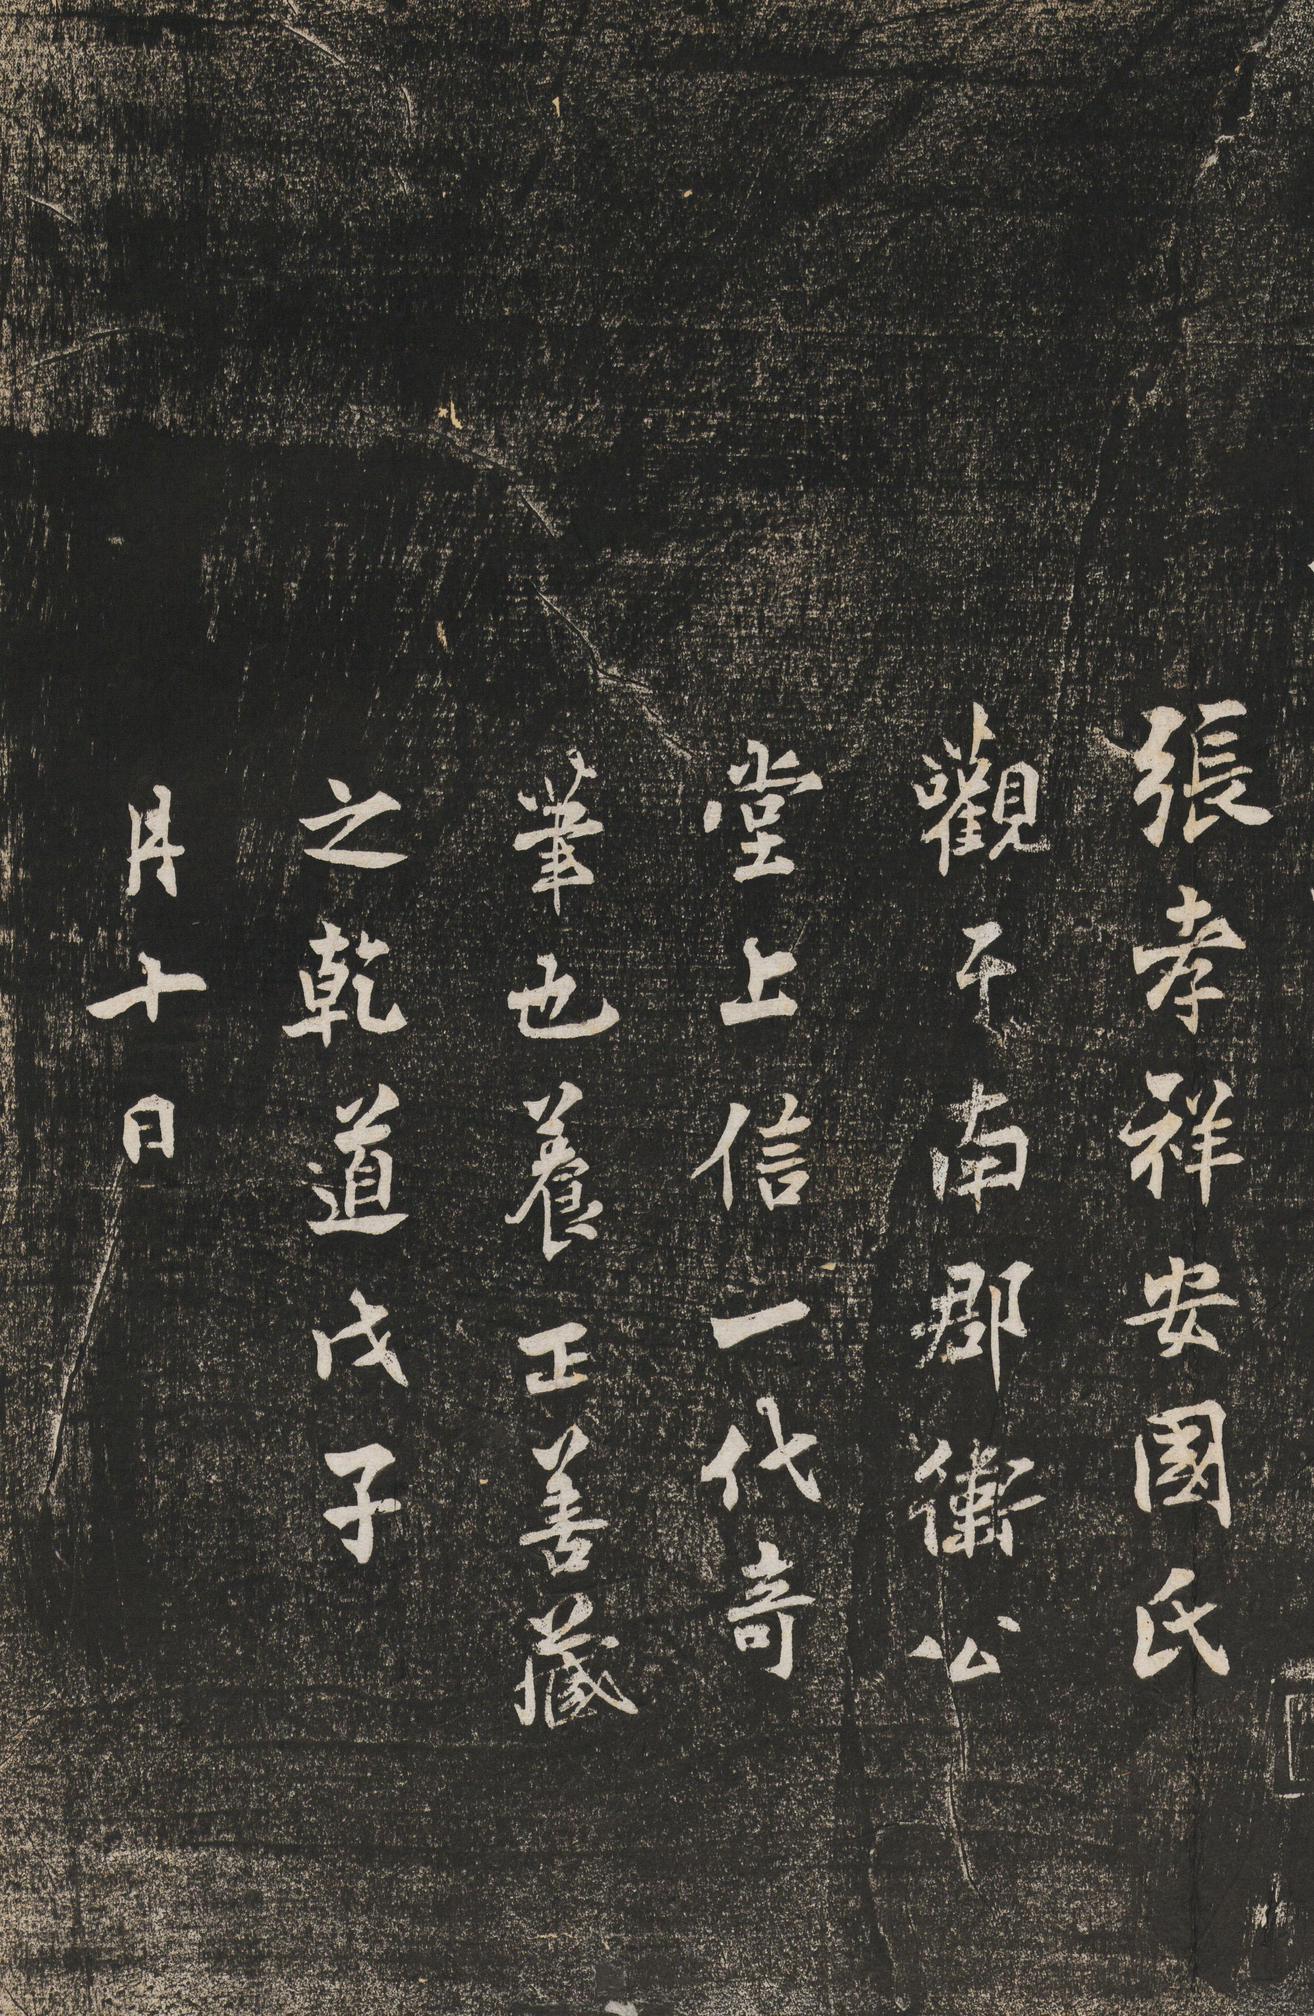 張孝祥安國氏
觀于南郡衞公
堂上信一代奇
筆也養正善藏
之乾道戊子
月十日